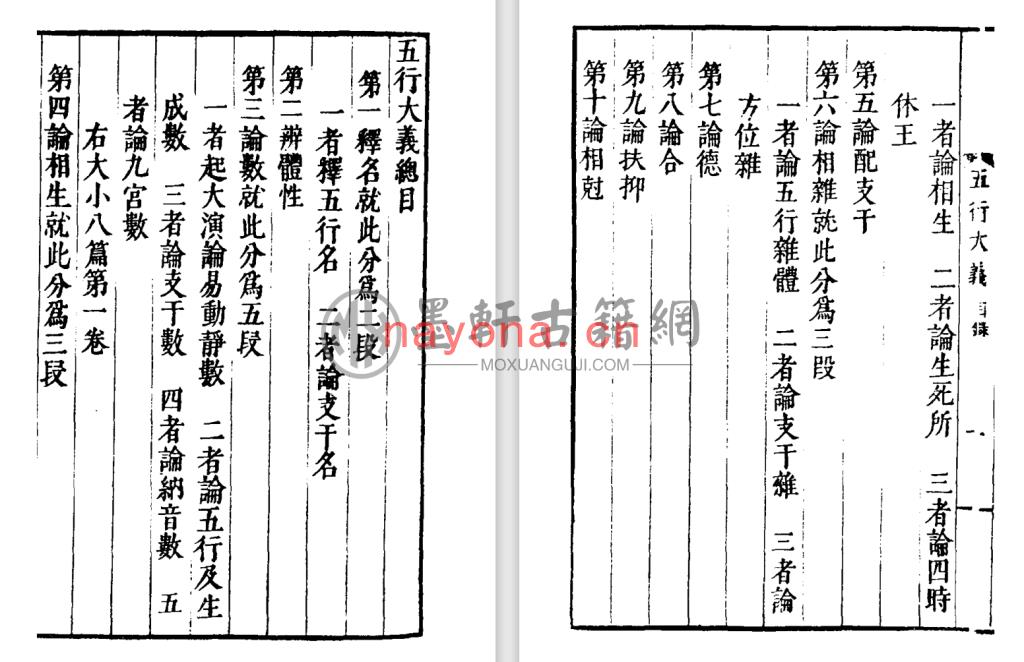 五行大義總目
第一釋名就此分爲二段
一者釋五行名 二者論支干名
第二辨體性
第三論數就此分爲五段
一者起大演論易動靜數 二者論五行及生
成數 三者論支干數 四者論納音數 五
者論九宮數
右大小八篇第一卷
第四論相生就此分爲三段
五行大義 目錄 一
一者論相生 二者論生死所 三者論四時
休王
第五論配支干
第六論相雜就此分爲三段
一者論五行雜體 二者論支干雜 三者論
方位雜
第七論德
第八論合
第九論扶抑
第十論相尅
墨軒古籍網
nayona.cn
MOXUANGUJI.COM